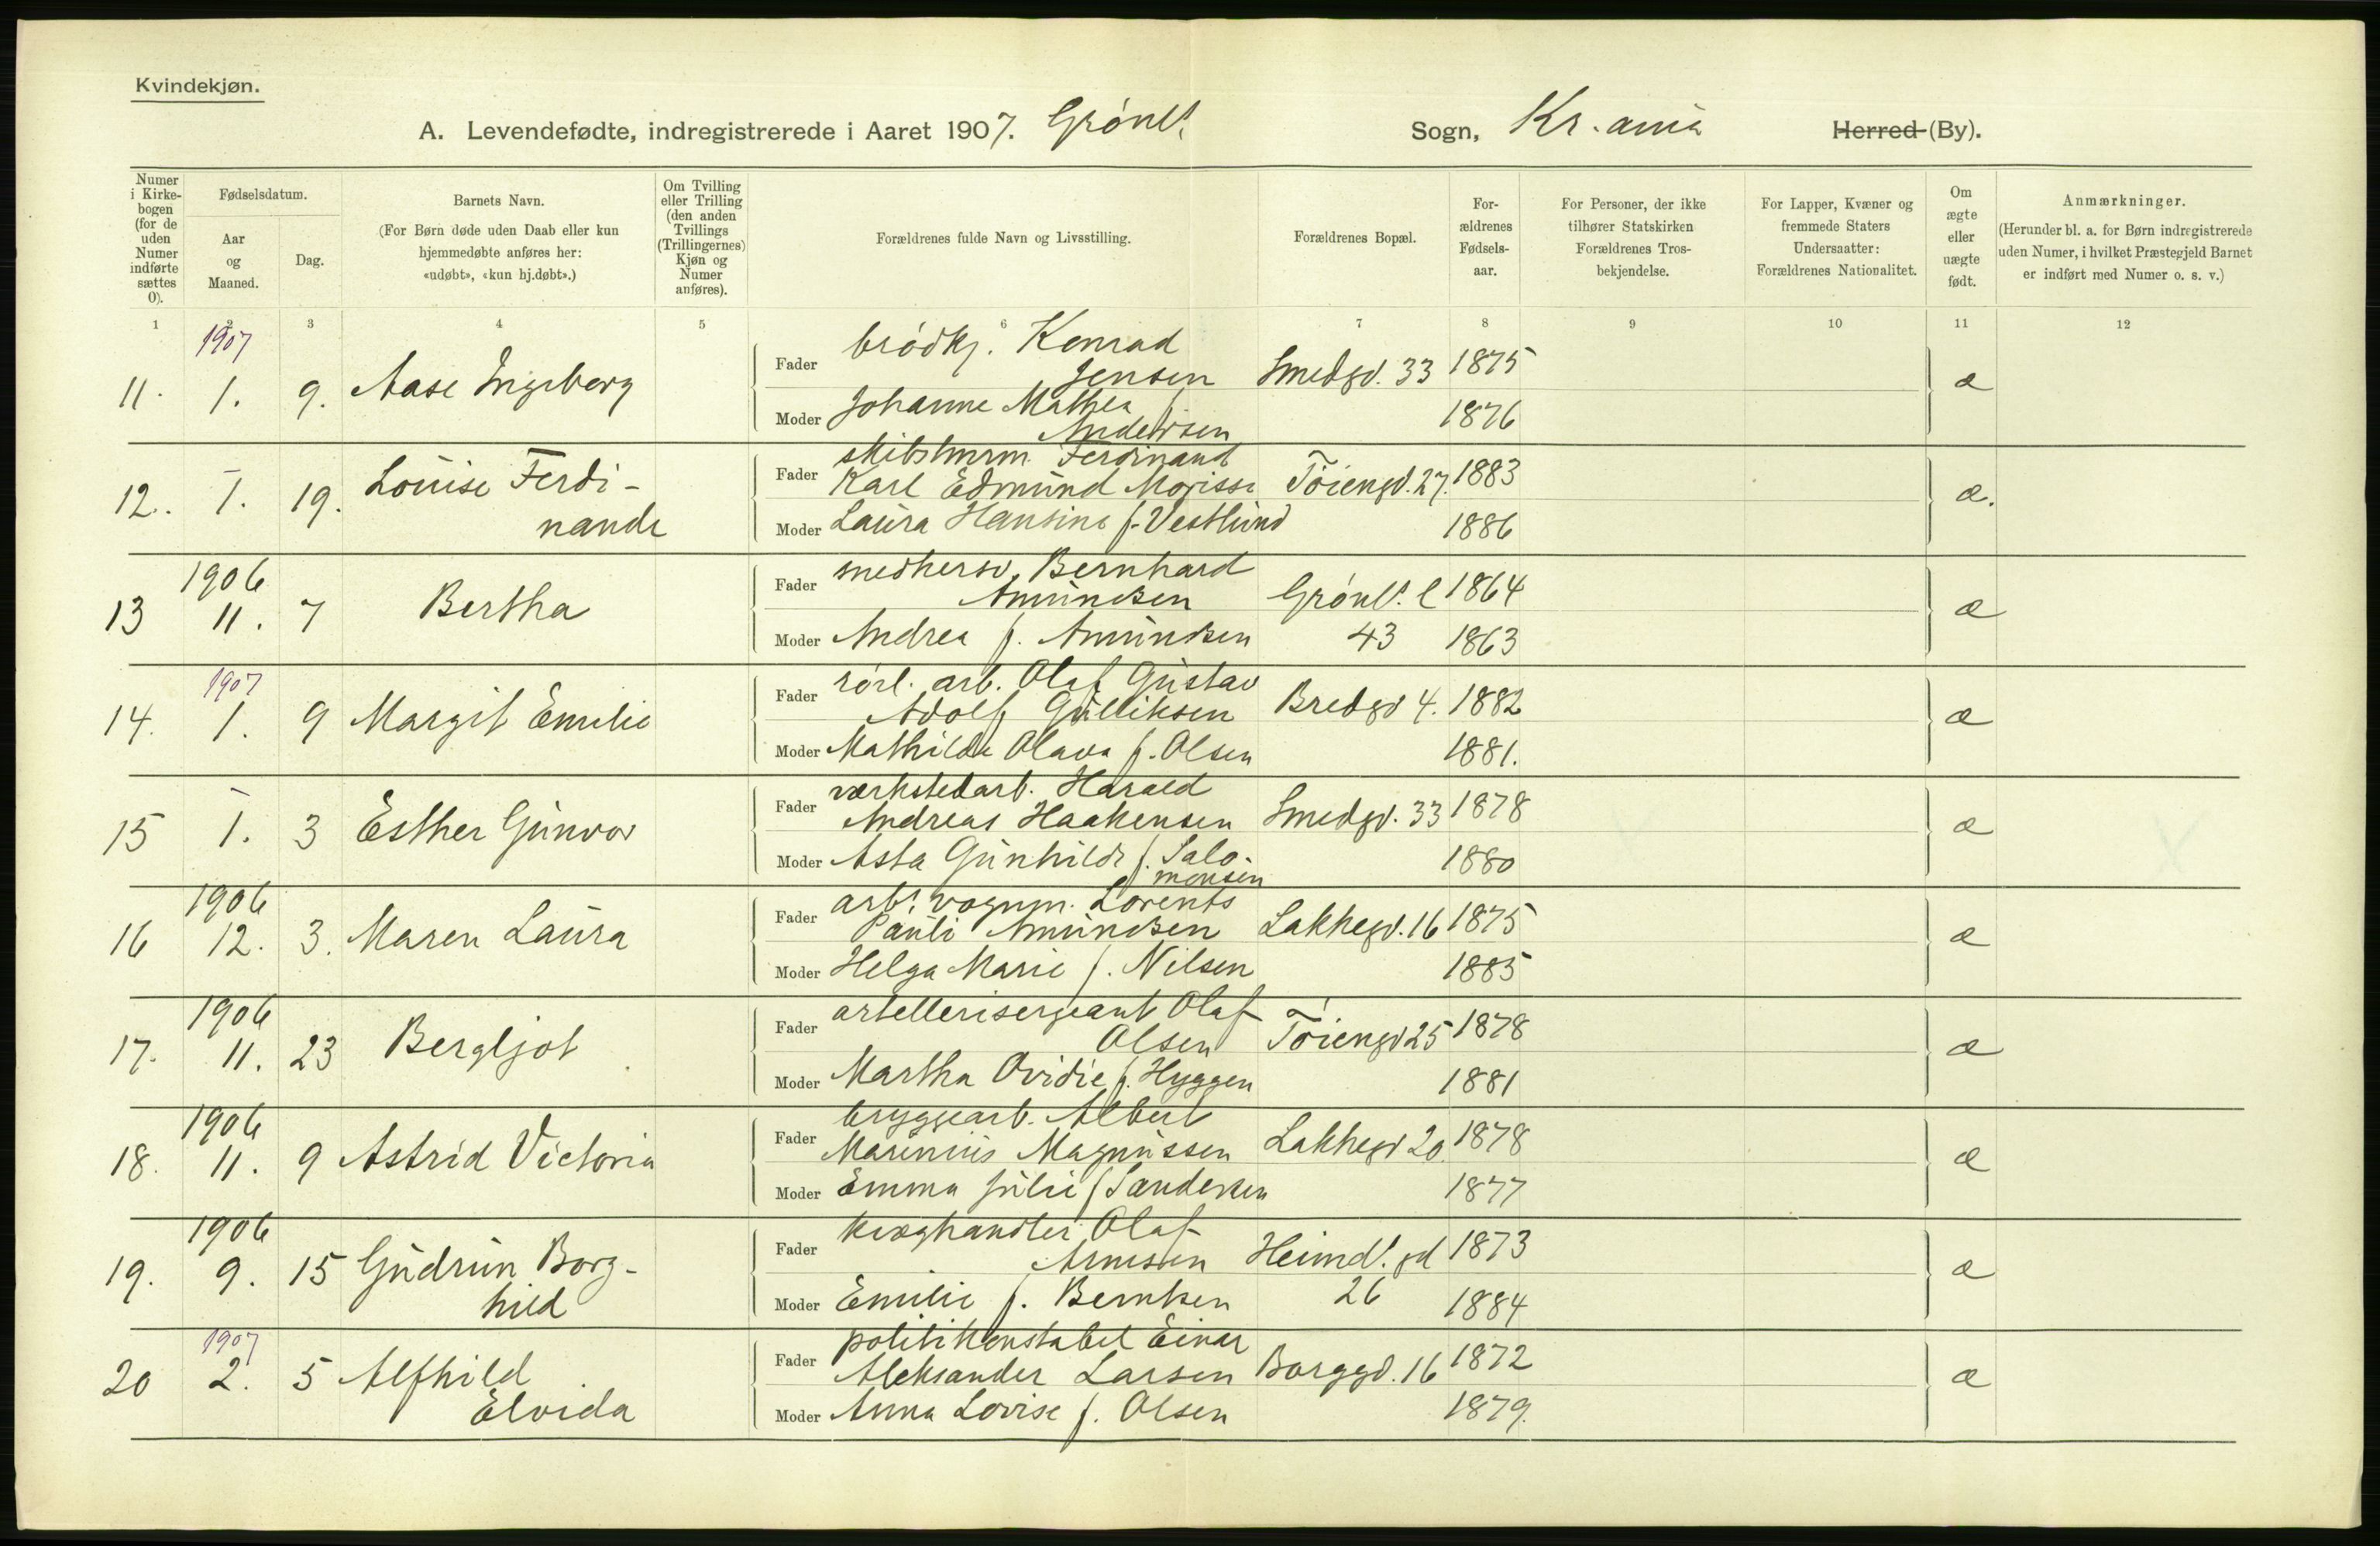 Kvindekjøn.
A. Levendefødte, indregistrerede i Aaret 1907. Grønl. Sogn, Kr.ania Herred (By).
Numer i Kirkebogen (for de uden Numer indførte sættes 0).
Fødselsdatum.
Aar og Maaned.
Dag.
Barnets Navn.
(For Børn døde uden Daab eller kun hjemmedøbte anføres her: «udøbt», «kun hj.døbt».)
Om Tvilling eller Trilling (den anden Tvillings (Trillingernes) Kjøn og Numer anføres).
Forældrenes fulde Navn og Livsstilling.
Forældrenes Bopæl.
Forældrenes Fødselsaar.
For Personer, der ikke tilhører Statskirken Forældrenes Trosbekjendelse.
For Lapper, Kvæner og fremmede Staters Undersaatter: Forældrenes Nationalitet.
Om ægte eller uægte født.
Anmærkninger.
(Herunder bl. a. for Børn indregistrerede uden Numer, i hvilket Præstegjeld Barnet er indført med Numer o. s. v.)
1 2 3 4 5 6 7 8 9 10 11 12
1907
11. 1. 9. Aase Ingeborg
Fader brødkj. Konrad
Jensen Smedgd. 33 1875 æ
Moder Johanne Mathea f.
Andersen 1876
12. 1. 19. Louise Ferdi-
nande
Fader skibstmrm. Ferdinand
Karl Edmund Morisse Tøiengd. 27. 1883 æ.
Moder Laura Hansine f. Vestlund 1886
1906
13 11. 7 Bertha
Fader snedkersv. Bernhard
Amundsen Grønl. l 1864 æ
Moder Andrea f. Amundsen 43 1863
1907
14. 1. 9 Margit Emilie
Fader rørl. arb. Olaf Gustav
Adolf Gulliksen Bredgd 4. 1882 æ
Moder Mathilde Olava f. Olsen 1881.
15 1. 3 Esther Gunvor
Fader værkstedarb. Harald
Andreas Haakensen Smedgd. 33 1878 æ
Moder Asta Gunhild f. Salo-
monsen 1880
1906
16 12. 3. Maren Laura
Fader arb. vognm. Lorents
Pauli Amundsen Lakkegd. 16 1875 æ
Moder Helga Marie f. Nilsen 1885
1906
17. 11. 23 Bergljot
Fader artellerisergeant Olaf
Olsen Tøiengd 25 1878 æ
Moder Martha Ovidie f. Hyggen 1881
1906
18. 11. 9 Astrid Victoria
Fader bryggearb. Albert
Marinius Magnussen Lakkegd 20. 1878 æ
Moder Emma Julie f Sandersen 1877
1906
19. 9. 15 Gudrun Borg-
hild
Fader kvæghandler Olaf
Arnesen Heimd. gd 1873 æ
Moder Emilie f. Berntsen 26 1884
1907
20 2. 5 Alfhild
Elvida
Fader politikonstabel Einar
Aleksander Larsen Borggd. 16 1872 æ
Moder Anna Lovise f. Olsen 1879.